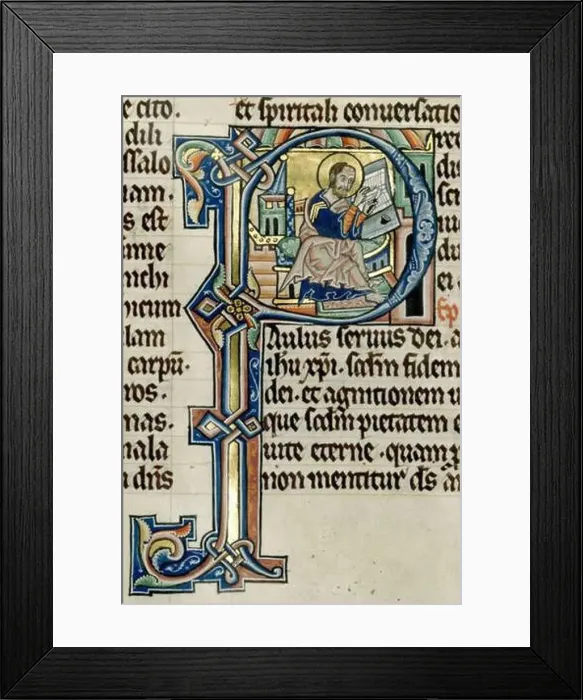 e cito.
dili
ssalo
iam.
s est
sime
nichi
nicum
lam
carpū.
ros.
nas.
nala
dn̄s
et spiritali conuersatio
P
Aulus seruus dei. a
ihu xp̄i. scd̄m fidem
dei. et agnitionem u
que scd̄m pietatem e
uite eterne. quam p
non mentitur d̄s an